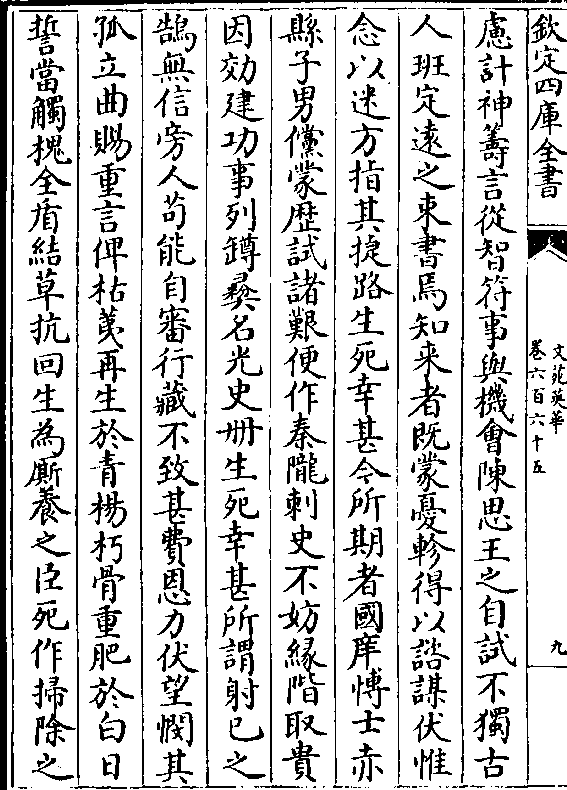 欽定四庫全書
文苑英華
卷六百六十五
九
慮計神籌言從智符事與機會陳思王之自試不獨古
人班定遠之東書焉知来者既蒙憂軫得以諮謀伏惟
念以迷方指其捷路生死幸甚今所期者國庠慱士赤
縣子男儻蒙歴試諸艱便作秦隴刺史不妨縁階取貴
因効建功事列罇彛名光史冊生死幸甚所謂射已之
鵠無信旁人苟能自審行藏不致甚費恩力伏望憫其
孤立曲賜重言俾枯荑再生於青楊朽骨重肥於白日
誓當觸槐全盾結草抗回生為厮養之臣死作掃除之